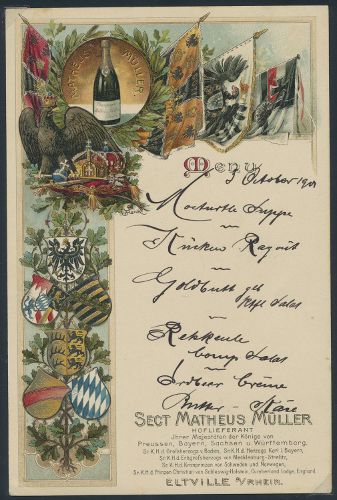 MATHEUS MÜLLER
Menu
3 October 190
Mocturtle Suppe
Kücken Ragout
Goldbutt gek
Rehkeule
comp Salat
Erdbeer Crème
Butter - Käse
SECT MATHEUS MÜLLER
HOFLIEFERANT
Jhrer Majestäten der Könige von
Preussen, Bayern, Sachsen u. Württemberg.
Sr. K.H.d. Grossherzogs v. Baden, Sr. K.H.d. Herzogs Karl i. Bayern,
Sr. K.H.d. Erbgrossherzogs von Mecklenburg-Strelitz,
Sr. K.H.d. Kronprinzen von Schweden und Norwegen,
Sr. K.H.d. Prinzen Christian von Schleswig-Holstein, Cumberland Lodge, England.
ELTVILLE A/RHEIN.